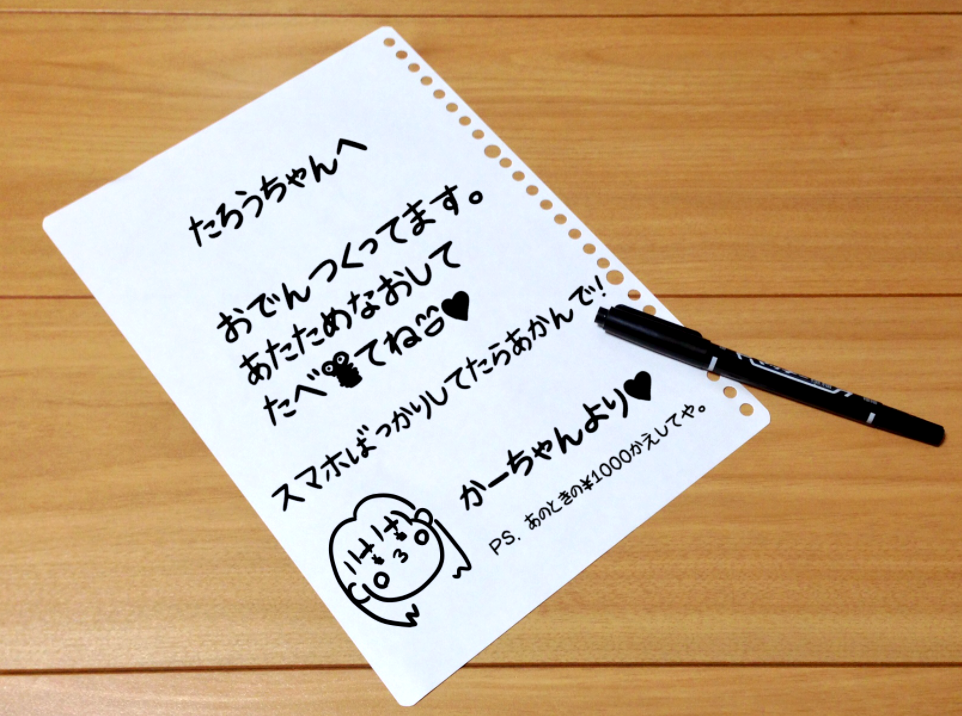 たろうちゃんへ
おでんつくってます。
あたためなおして
たべてね
スマホばっかりしてたらあかんで!
かーちゃんより♥
PS. あのときの¥1000かえしてや。